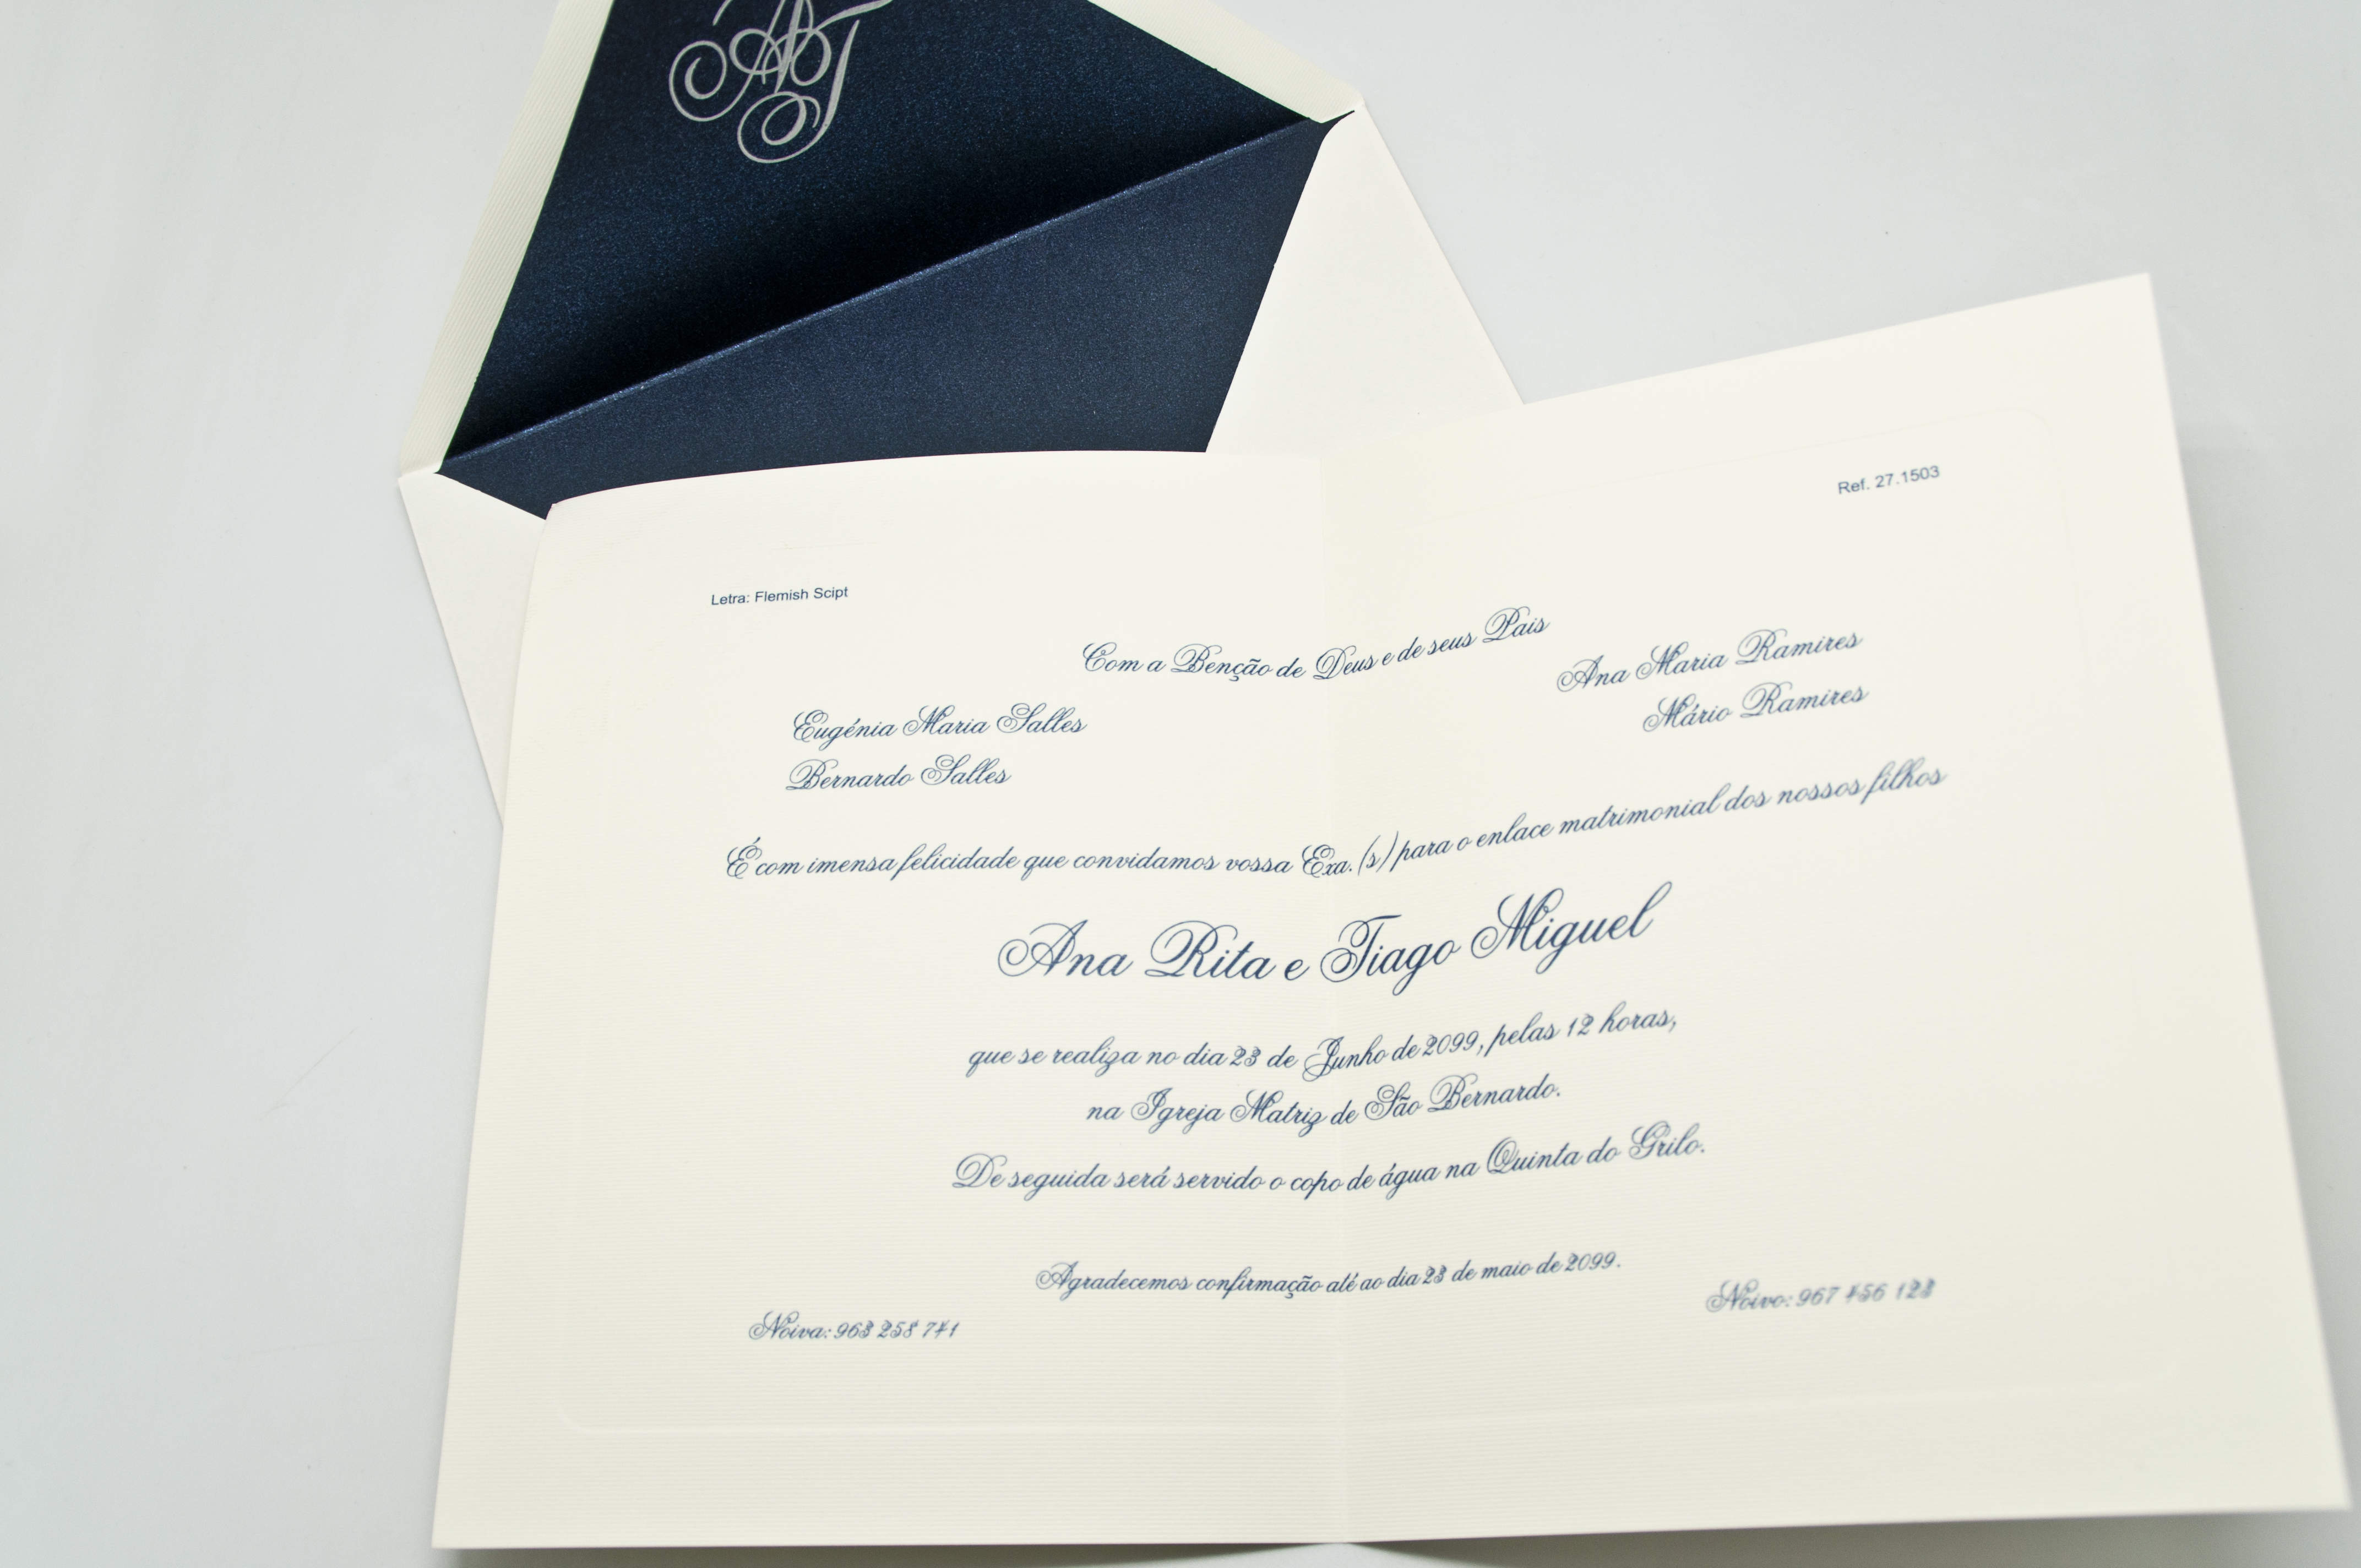 AT
Ref. 27.1503
Letra: Flemish Scipt
Com a Benção de Deus e de seus Pais
Eugénia Maria Salles
Bernardo Salles
Ana Maria Ramires
Mário Ramires
É com imensa felicidade que convidamos vossa Exa.(s) para o enlace matrimonial dos nossos filhos
Ana Rita e Tiago Miguel
que se realiza no dia 23 de Junho de 2099, pelas 12 horas,
na Igreja Matriz de São Bernardo.
De seguida será servido o copo de água na Quinta do Grilo.
Agradecemos confirmação até ao dia 23 de maio de 2099.
Noiva: 963 258 741
Noivo: 967 456 123